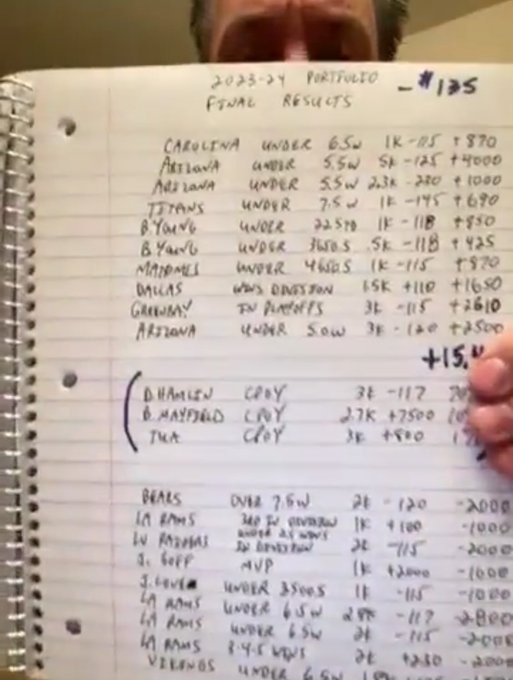 2023-24 PORTFOLIO - $125
FINAL RESULTS
CAROLINA UNDER 6.5W 1K -115 +870
ARIZONA UNDER 5.5W 5K -125 +4000
ARIZONA UNDER 5.5W 2.3K -230 +1000
TITANS UNDER 7.5W 1K -145 +690
B. YOUNG UNDER 22.5TD 1K -118 +850
B. YOUNG UNDER 3650.5 .5K -118 +425
MAHOMES UNDER 4650.5 1K -115 +870
DALLAS WINS DIVISION 1.5K +110 +1650
GREENBAY IN PLAYOFFS 3K -115 +2610
ARIZONA UNDER 5.0W 3K -120 +2500
+15.
D. HAMLIN CPOY 3K -117
B. MAYFIELD CPOY 2.7K +7500
TUA CPOY 3K +800
BEARS OVER 7.5W 2K -120 -2000
LA RAMS 3RD IN DIVISION 1K +100 -1000
LV RAIDERS IN DIVISION 2K -115 -2000
J. GOFF MVP 1K +2000 -1000
J. LOVE UNDER 3500.5 1K -115 -1000
LA RAMS UNDER 6.5W 2.8K -117 -2800
LA RAMS UNDER 6.5W 2K -115 -2000
LA RAMS 3-4-5 WINS 2K +230 -2000
VIKINGS UNDER 6.5W